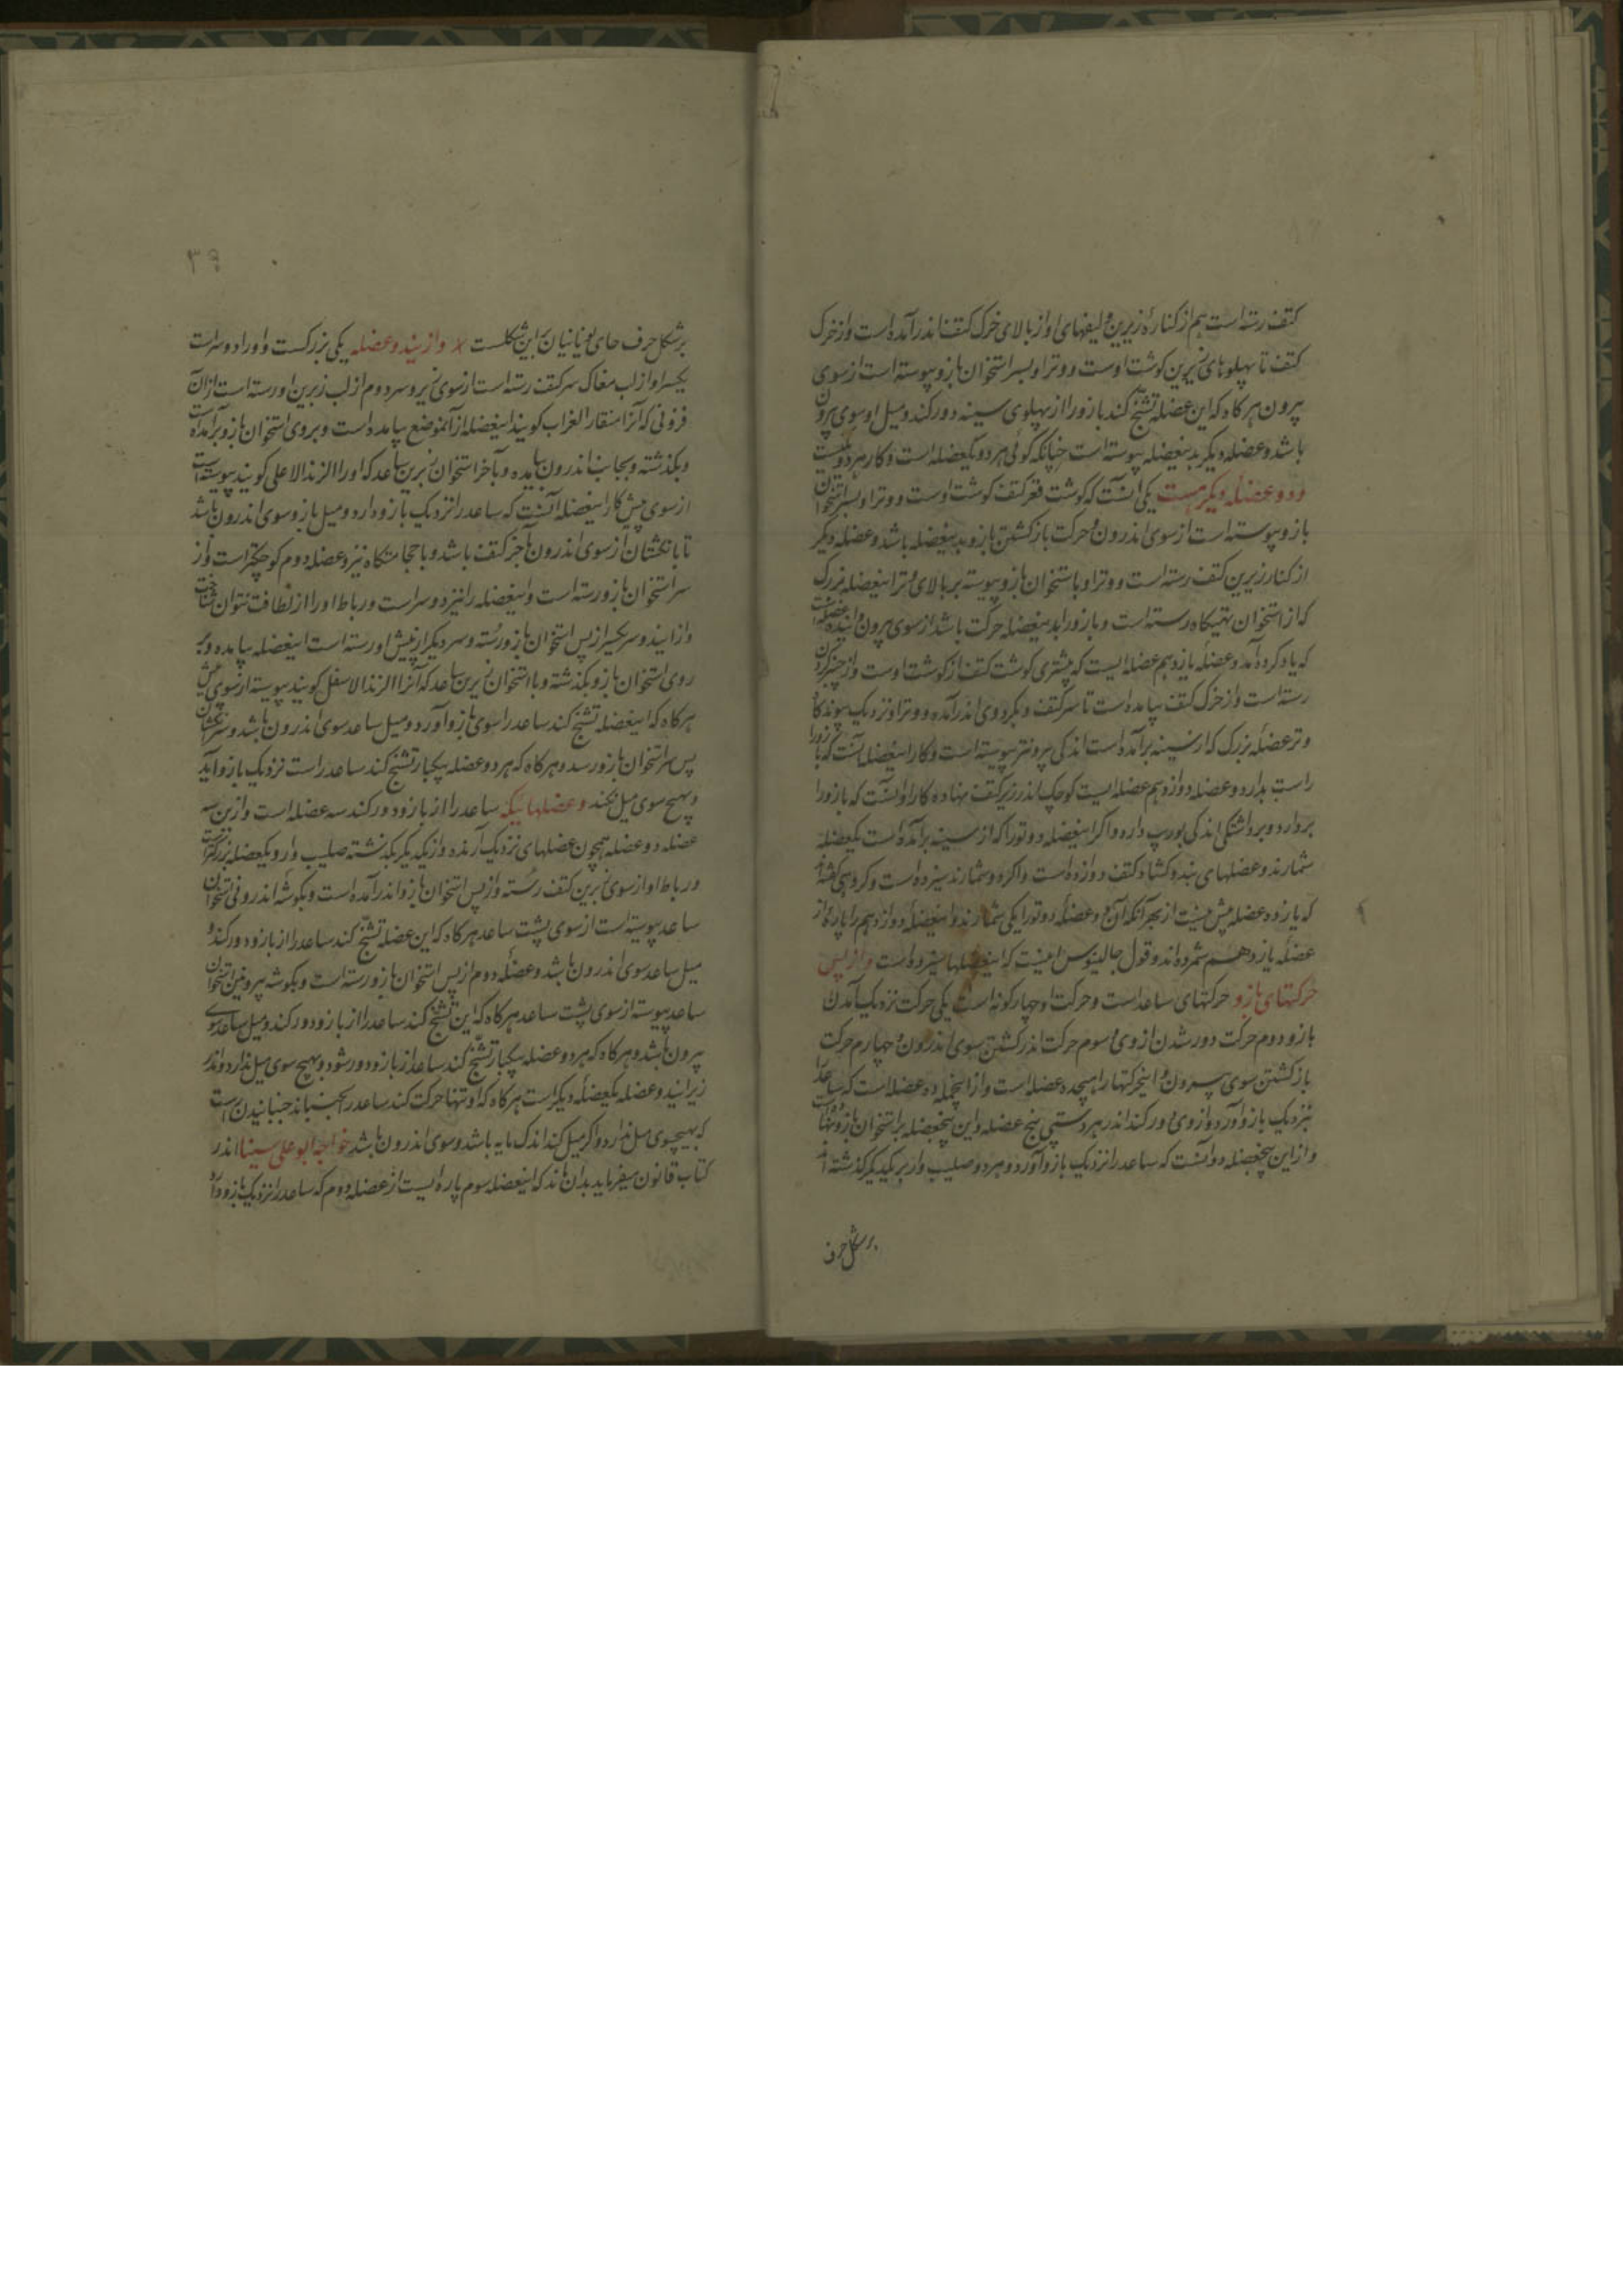 کتف رسته است هم از کناره زیرین و لیفهای او از بالای خرک کتف اندر آمده است و از خرک
کتف تا پهلوهای زیرین کوشت اوست و وتر او بسر استخوان بازو پیوسته است از سوی
بیرون هرکاه که این عضله تشنج کند بازو را از پهلوی سینه دور کند و میل او سوی بیرون
باشد و عضله دیکر بدینعضله پیوسته است چنانکه کوئی هر دو یکعضله است و کار هر دو یکیست
و دو عضله دیکر هست یکی آنست که کوشت قعر کتف کوشت اوست و وتر او بسر استخوان
بازو پیوسته است از سوی اندرون و حرکت باز کشتن بازو بدینعضله باشد و عضله دیکر
از کنار زیرین کتف رسته است و وتر او با استخوان بازو پیوسته بر بالای وتر اینعضله بزرک
که از استخوان تهیکاه رسته است و بازو را بدینعضله حرکت باشد از سوی بیرون و اینده عضله است
که یاد کرده آمد و عضله یازدهم عضله ایست که بیشتری کوشت کتف از کوشت اوست و از چنبر کردن
رسته است و از خرک کتف بیامده است تا سر کتف و بکرد وی اندر آمده و وتر او نزدیک پیوندکاه
وتر عضله بزرک که از سینه برآمده است اندکی بیرونتر پیوسته است و کار اینعضله آنست که بازو را
راست بدارد و عضله دوازدهم عضله ایست کوچک اندر زیر کتف نهاده کار او آنست که بازو را
بردارد و برداشتکی اندکی بوریب دارد و اکر اینعضله دو تو را که از سینه برآمده است یکعضله
شمارند و عضلهای بند و کشاد کتف دوازده است و اکر دو شمارند سیزده است و کروهی کفته اند
که یازده عضله بیش نیست از بهر آنکه آن دو عضله دو تو را یکی شمارند و اینعضله دوازدهم را پاره از
عضله یازدهم شمرده اند و قول جالینوس اینست که اینعضلها سیزده است و از پس
حرکتهای بازو حرکتهای ساعد است و حرکت او چهار کونه است یکی حرکت نزدیک آمدن
بازو دوم حرکت دور شدن از وی و سوم حرکت اندر کشتن سوی اندرون و چهارم حرکت
باز کشتن سوی بیرون و اینحرکتها را هیجده عضله است و از اینجمله ده عضله است که ساعد را
بنزدیک بازو آورد و از وی دور کند اندر هر دستی پنج عضله و این پنجعضله بر استخوان بازو نهاده است
و از این پنجعضله دو آنست که ساعد را نزدیک بازو آورد و هر دو صلیب وار بر یکدیکر کذشته اند
بر شکل حرف
۳۹
بر شکل حرف حای یونانیان این شکلست x و از ایندو عضله یکی بزرکست و او را دو سر است
یکسر او از لب مغاک سر کتف رسته است از سوی زیر و سر دوم از لب زیرین او رسته است از آن
فزونی که آنرا منقار الغراب کویند اینعضله از آنموضع بیامده است و بروی استخوان بازو برآمده است
و بکذشته و بجانب اندرون آمده و بآخر استخوان زبرین ساعد که او را الزند الاعلی کویند پیوسته است
از سوی پیش کار اینعضله آنست که ساعد را نزدیک بازو دارد و میل بازو سوی اندرون باشد
تا بانکشتان از سوی اندرون تا خر کتف باشد و با حجامتکاه نیز و عضله دوم کوچکتر است و از
سر استخوان بازو رسته است و اینعضله را نیز دو سر است و رباط او را از لطافت نتوان شناخت
و از ایندو سر یکسر از پس استخوان بازو رسته و سر دیکر از پیش او رسته است اینعضله بیامده و بر
روی استخوان بازو بکذشته و با استخوان زیرین ساعد که آنرا الزند الاسفل کویند پیوسته از سوی پیش
هرکاه که اینعضله تشنج کند ساعد را سوی بازو آورد و میل ساعد سوی اندرون باشد و سر انکشتان
پس سر استخوان بازو رسد و هرکاه که هر دو عضله بیکبار تشنج کند ساعد راست نزدیک بازو آید
و بهیچ سوی میل نکند و عضلهائیکه ساعد را از بازو دور کند سه عضله است و ازین سه
عضله دو عضله همچون عضلهای نزدیک آرنده و از یکدیکر بکذشته صلیب وار و یکعضله بزرکتر است
و رباط او از سوی زبرین کتف رسته و از پس استخوان بازو اندر آمده است و بکوشه اندرونی استخوان
ساعد پیوسته است از سوی پشت ساعد هرکاه که این عضله تشنج کند ساعد را از بازو دور کند و
میل ساعد سوی اندرون باشد و عضله دوم از پس استخوان بازو رسته است و بکوشه بیرونین استخوان
ساعد پیوسته از سوی پشت ساعد هرکاه که این تشنج کند ساعد را از بازو دور کند و میل ساعد سوی
بیرون باشد و هرکاه که هر دو عضله بیکبار تشنج کند ساعد از بازو دور شود و بهیچ سوی میل ندارد و اندر
زیر ایندو عضله یکعضله دیکر است هرکاه که او تنها حرکت کند ساعد را بجنباند جنبانیدن راست
که بهیچسوی میل ندارد و اکر میل کند اندک مایه باشد و سوی اندرون باشد خواجه ابو علی سینا اندر
کتاب قانون میفرماید بدان ماند که اینعضله سوم پاره ایست از عضله دوم که ساعد را نزدیک بازو دارد